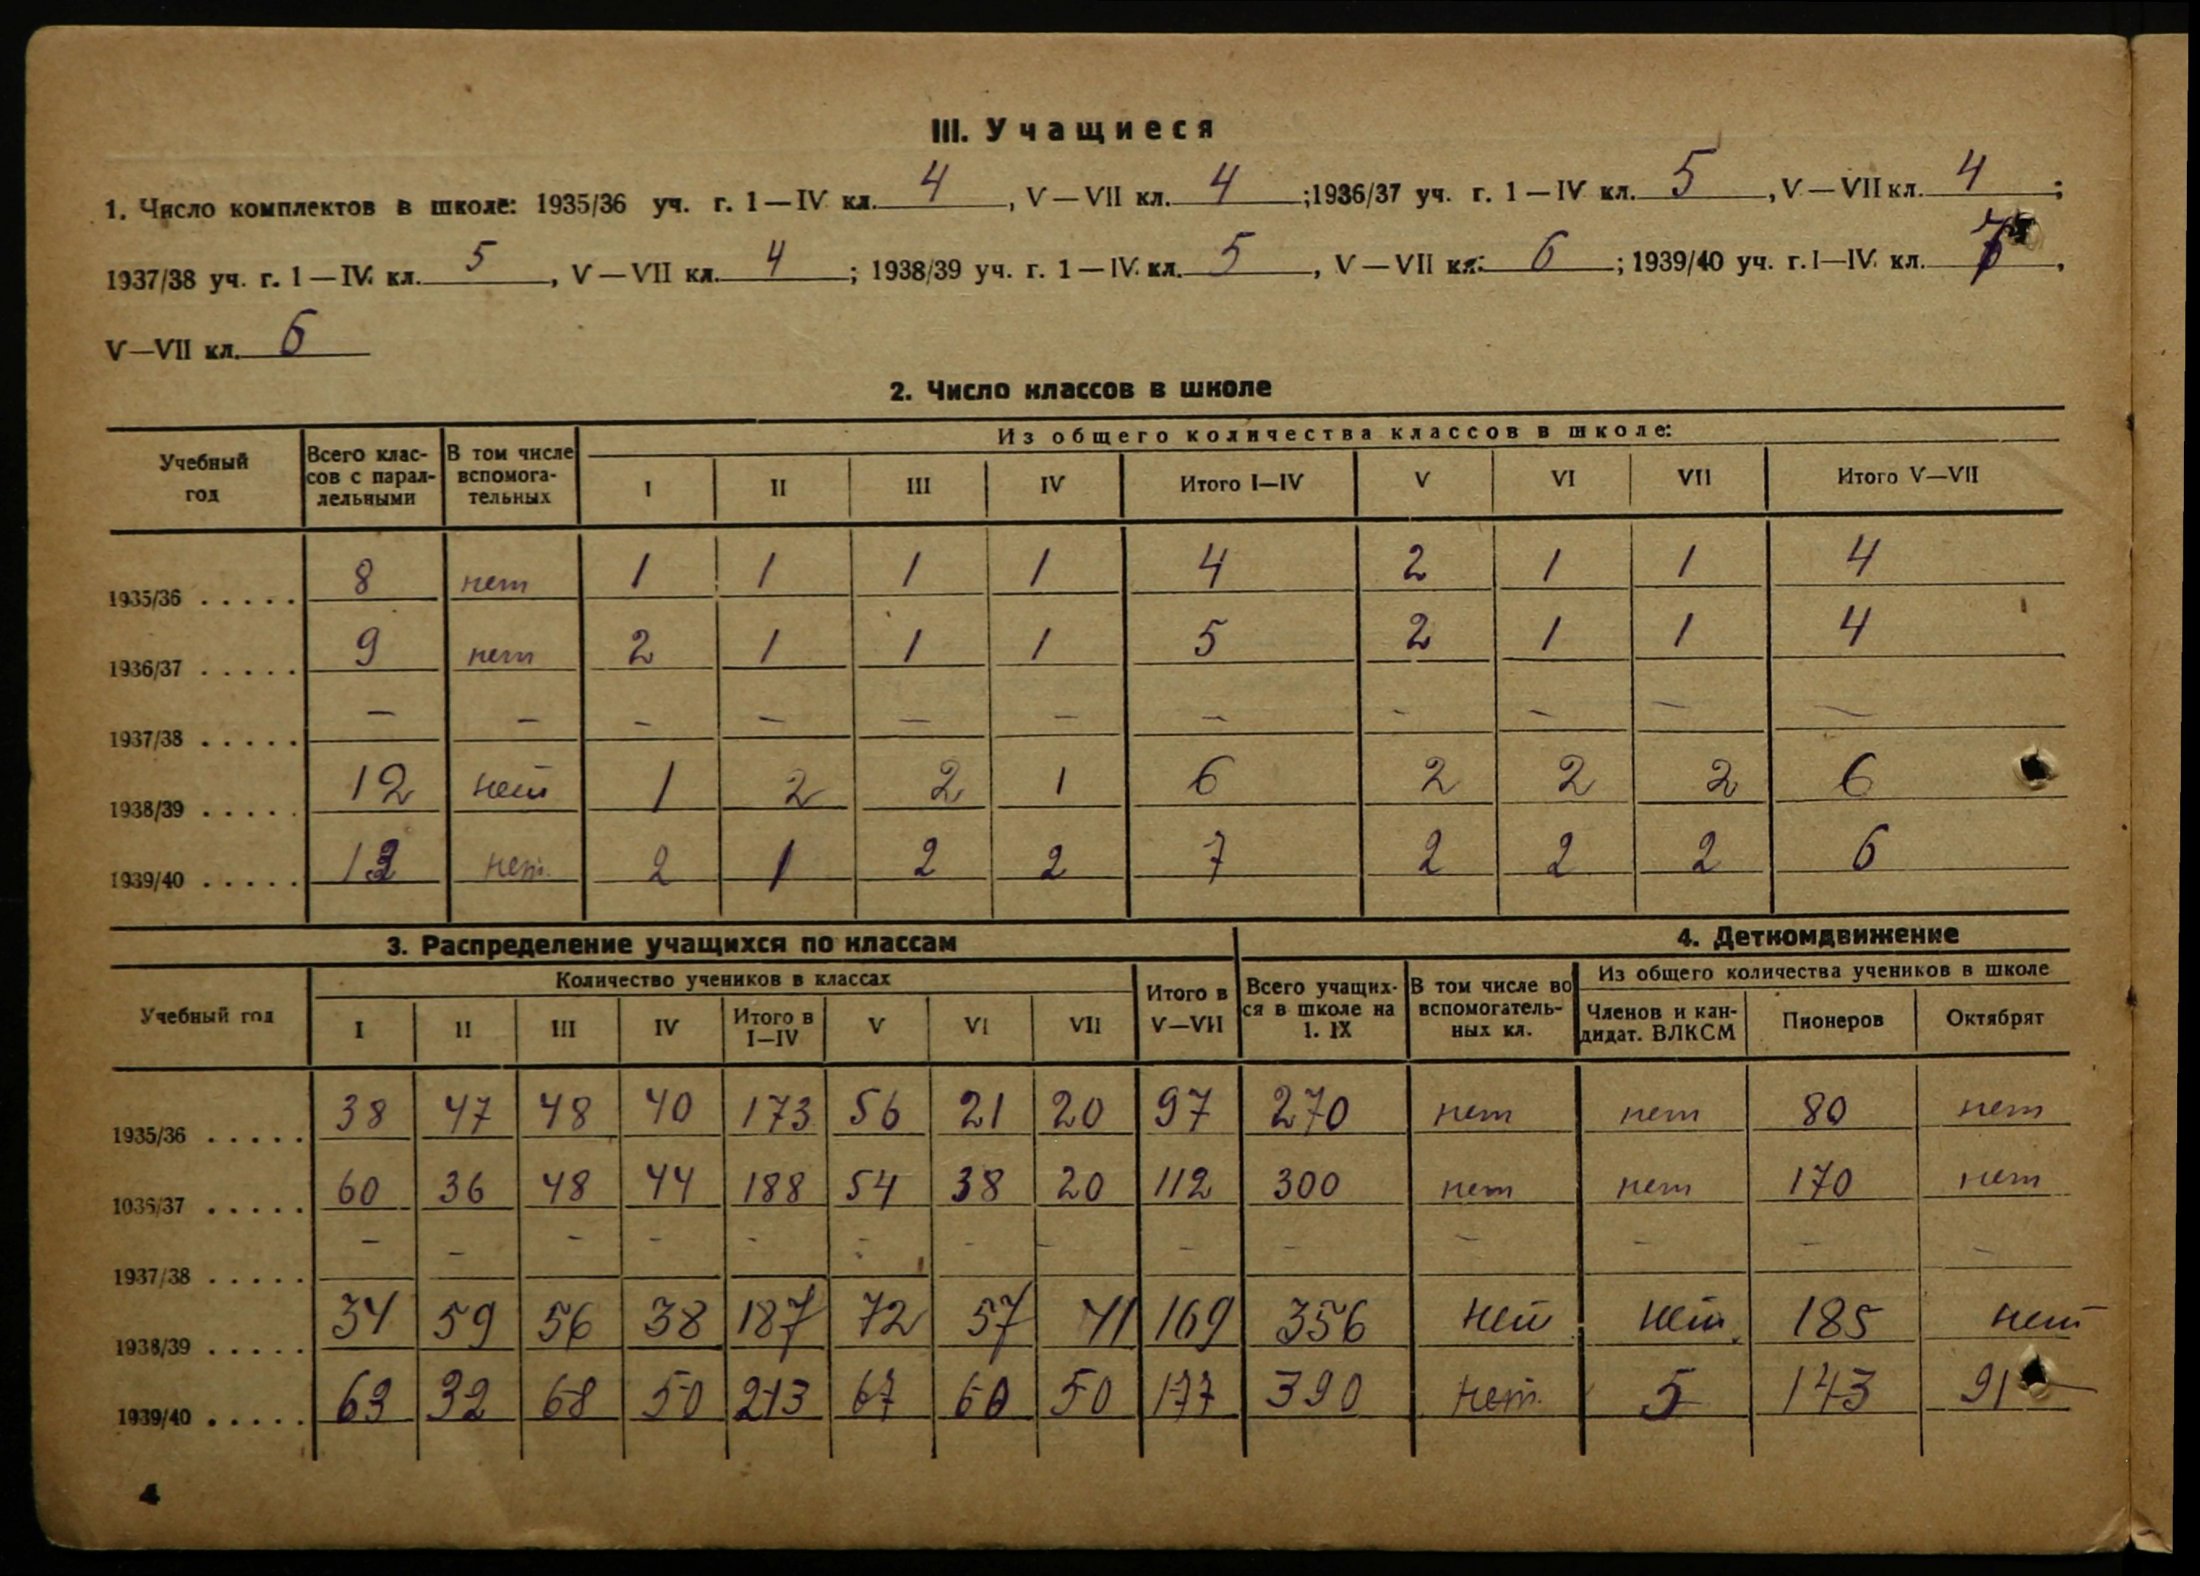 III. Учащиеся
1. Число комплектов в школе: 1935/36 уч. г. 1—IV кл. 4, V—VII кл. 4; 1936/37 уч. г. 1—IV кл. 5, V—VII кл. 4;
1937/38 уч. г. 1—IV кл. 5, V—VII кл. 4; 1938/39 уч. г. 1—IV кл. 5, V—VII кл. 6; 1939/40 уч. г. I—IV кл. 7,
V—VII кл. 6
2. Число классов в школе
Учебный год | Всего клас- сов с парал- лельными | В том числе вспомога- тельных | Из общего количества классов в школе:
I | II | III | IV | Итого I—IV | V | VI | VII | Итого V—VII
1935/36 . . . . . 8 нет 1 1 1 1 4 2 1 1 4
1936/37 . . . . . 9 нет 2 1 1 1 5 2 1 1 4
1937/38 . . . . . — — — — — — — — — — —
1938/39 . . . . . 12 нет 1 2 2 1 6 2 2 2 6
1939/40 . . . . . 13 нет. 2 1 2 2 7 2 2 2 6
3. Распределение учащихся по классам
4. Деткомдвижение
Учебный год | Количество учеников в классах | Итого в V—VII | Всего учащих- ся в школе на 1. IX | В том числе во вспомогатель- ных кл. | Из общего количества учеников в школе
I | II | III | IV | Итого в I—IV | V | VI | VII | Членов и кан- дидат. ВЛКСМ | Пионеров | Октябрят
1935/36 . . . . . 38 47 48 40 173 56 21 20 97 270 нет нет 80 нет
1036/37 . . . . . 60 36 48 44 188 54 38 20 112 300 нет нет 170 нет
1937/38 . . . . . — — — — — — — — — — — — — —
1938/39 . . . . . 34 59 56 38 187 72 57 41 169 356 нет нет 185 нет
1939/40 . . . . . 63 32 68 50 213 67 60 50 177 390 нет. 5 143 91
4